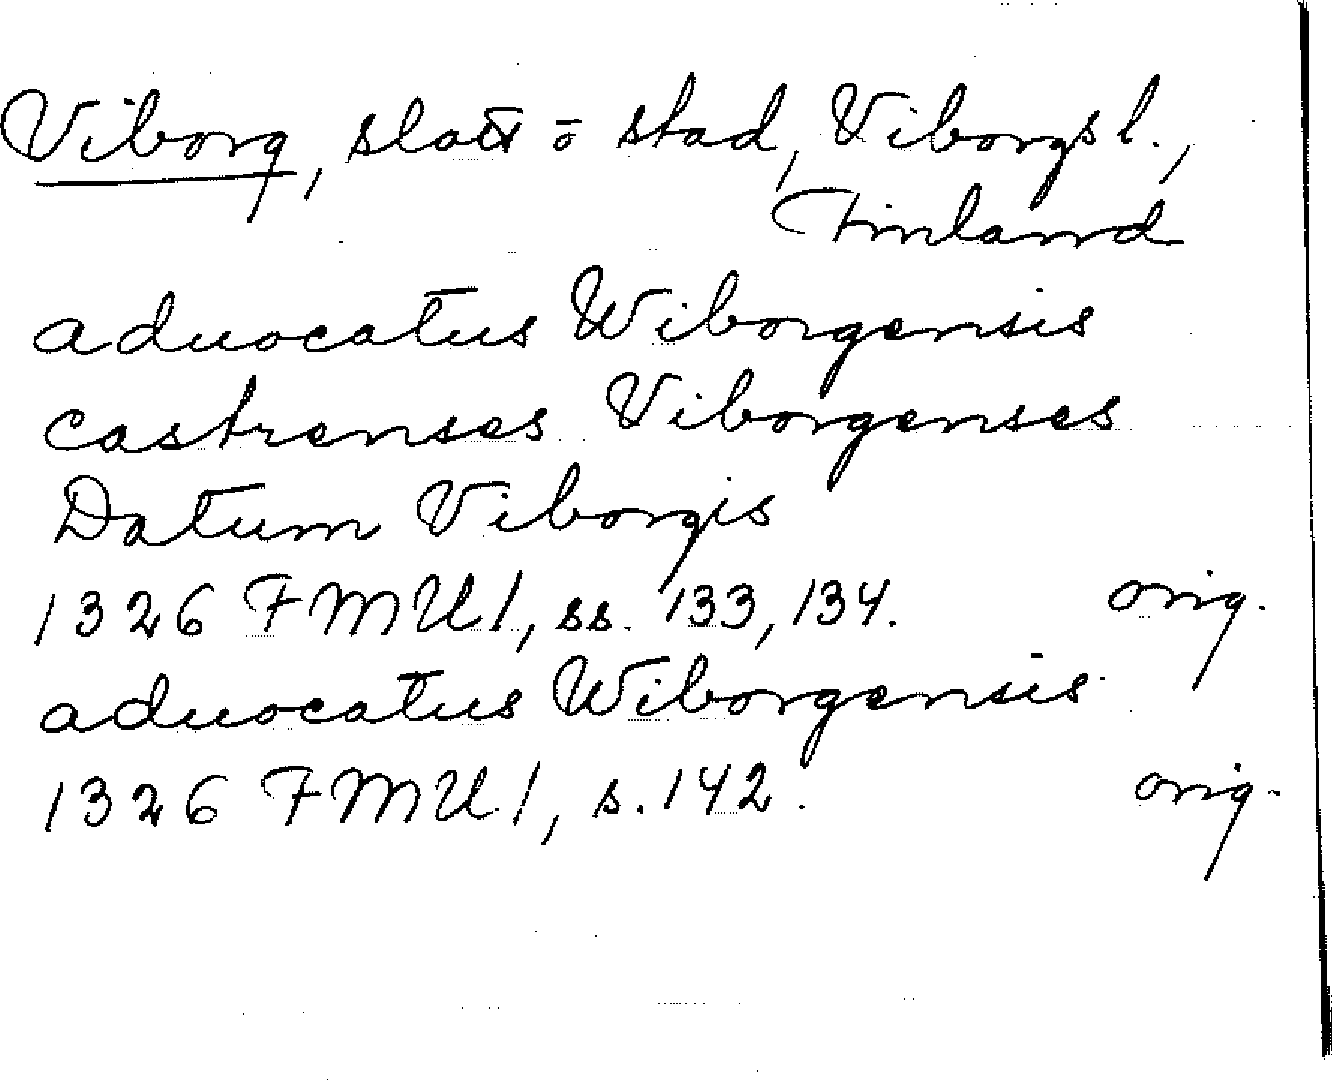 Viborg, slott ō stad, Viborgs l.,
Finland
aduocatus Wiborgensis
castrenses Viborgenses
Datum Viborgis
1326 FMU I, ss. 133, 134. orig.
aduocatus Wiborgensis
1326 FMU I, s. 142. orig.